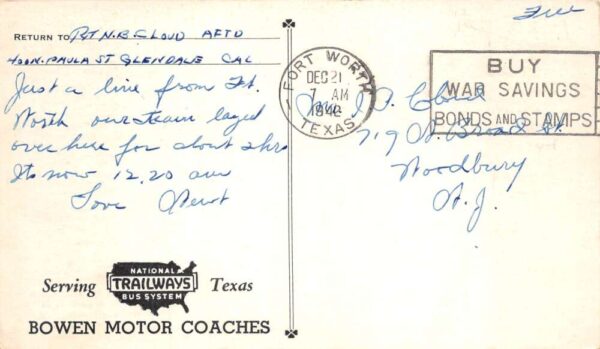 Free
RETURN TO Pvt N.B. Cloud AFTD
400 N. PAULA ST GLENDALE CAL
Just a line from Ft.
Worth our team layed
over here for about 2 hrs
Its now 12.20 am
Love Newt
FORT WORTH
DEC 21
7 AM
TEXAS
BUY
WAR SAVINGS
BONDS AND STAMPS
Cloud
719 N. Broad St.
Woodbury
N.J.
Serving NATIONAL TRAILWAYS BUS SYSTEM Texas
BOWEN MOTOR COACHES